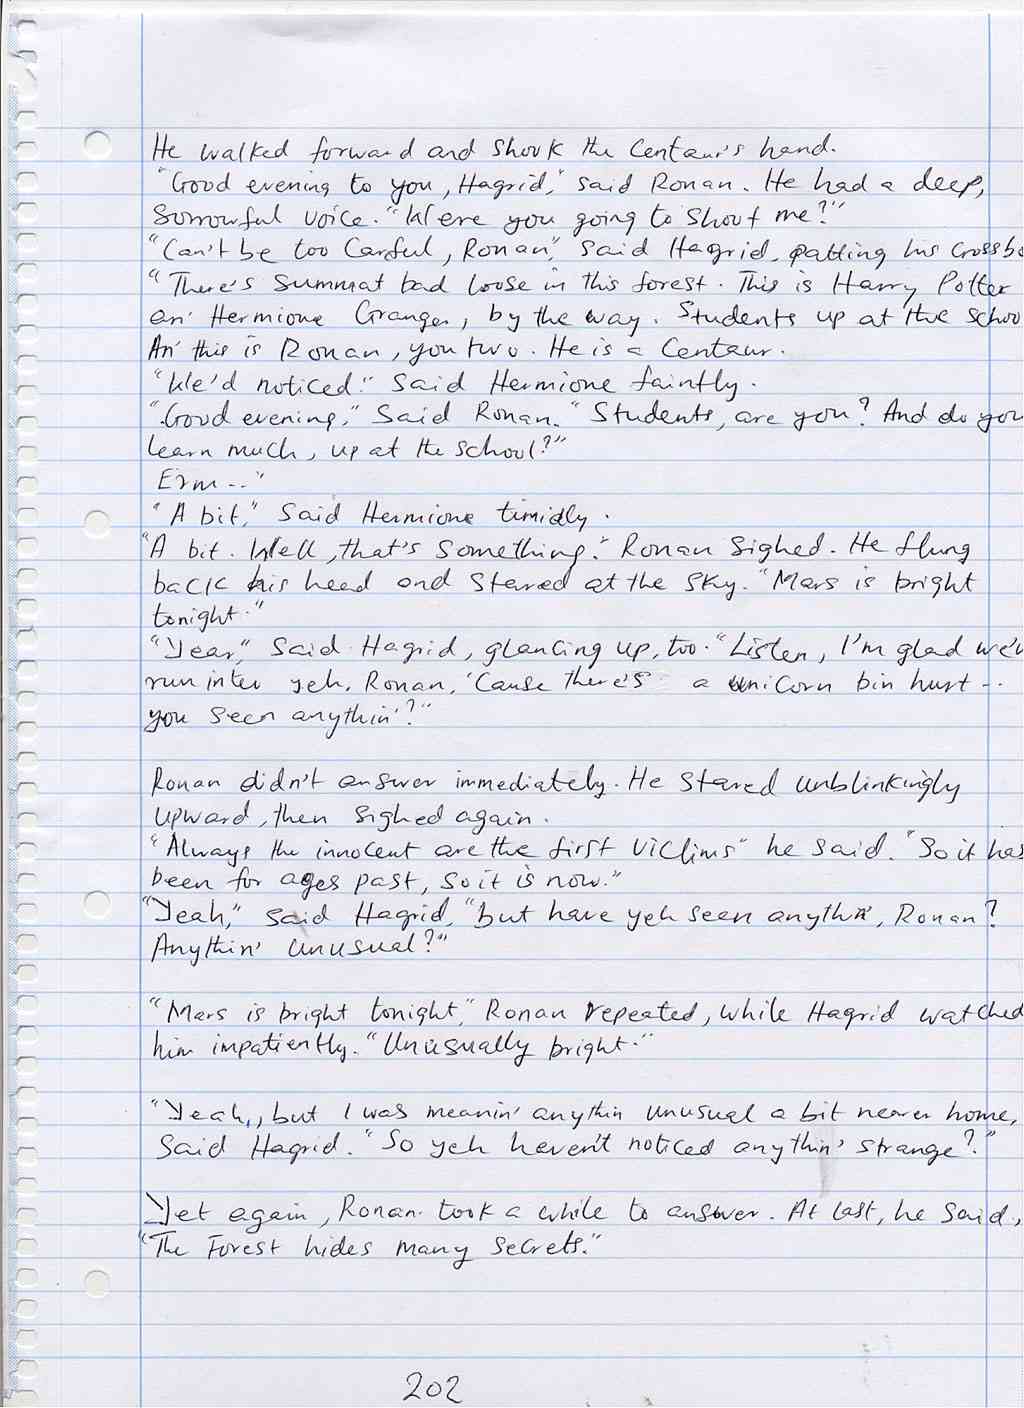 He walked forward and shook the Centaur's hand.
"Good evening to you, Hagrid," said Ronan. He had a deep,
Sorrowful voice. "Were you going to shoot me?"
"Can't be too Careful, Ronan," said Hagrid, patting his crossb
"There's Summat bad loose in this forest. This is Harry Potter
an' Hermione Granger, by the way. Students up at the schoo
An' this is Ronan, you two. He is a Centaur.
"We'd noticed." Said Hermione faintly.
"Good evening," Said Ronan. "Students, are you? And do you
learn much, up at the school?"
Erm --"
"A bit," Said Hermione timidly.
"A bit. Well, that's something." Ronan Sighed. He flung
back his head and Stared at the Sky. "Mars is bright
tonight."
"Year," Said Hagrid, glancing up, too. "Listen, I'm glad we'v
run inter yeh, Ronan, 'Cause there's a unicorn bin hurt --
you seen anythin'?"
Ronan didn't answer immediately. He stared unblinkingly
upward, then sighed again.
"Always the innocent are the first victims" he said. "So it has
been for ages past, so it is now."
"Yeah," said Hagrid, "but have yeh seen anythin', Ronan?
Anythin' unusual?"
"Mars is bright tonight," Ronan repeated, while Hagrid watched
him impatiently. "Unusually bright."
"Yeah, but I was meanin' anythin unusual a bit nearer home,
Said Hagrid. "So yeh haven't noticed anythin' strange?"
Yet again, Ronan took a while to answer. At last, he said,
"The Forest hides many secrets."
202